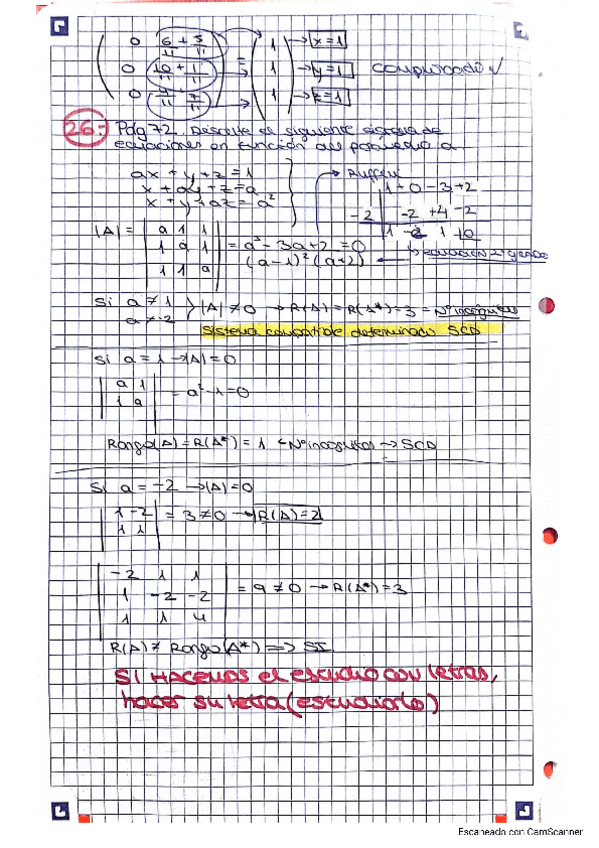 0 6/11 + 5/11 = 1 → x=1
0 10/11 + 1/11 = 1 → y=1 comprobado ✓
0 4/11 7/11 1 → z=1
26: Pág 72. Discute el siguiente sistema de
ecuaciones en función del parámetro a
ax + y + z = 1 → Ruffini
x + ay + z = a 1 + 0 - 3 + 2
x + y + az = a² -2 -2 +4 -2
|A| = a 1 1 1 -2 1 0
1 a 1 = a³ - 3a + 2 = 0 → ecuación 2º grado
1 1 a (a-1)² (a+2)
Si a ≠ 1 > |A| ≠ 0 → R(A) = R(A*) = 3 = Nº incógnitas
a ≠ -2
Sistema compatible determinado SCD
Si a = 1 → |A| = 0
a 1
1 a = a² - 1 = 0
Rango(A) = R(A*) = 1 < Nº incógnitas → SCD
Si a = -2 → |A| = 0
1 -2 = 3 ≠ 0 → R(A) = 2
1 1
-2 1 1
1 -2 -2 = 9 ≠ 0 → R(A*) = 3
1 1 4
R(A) ≠ Rango(A*) => SI
SI HACEMOS el estudio con letras,
hacer su letra (estudiarlo)
Escaneado con CamScanner